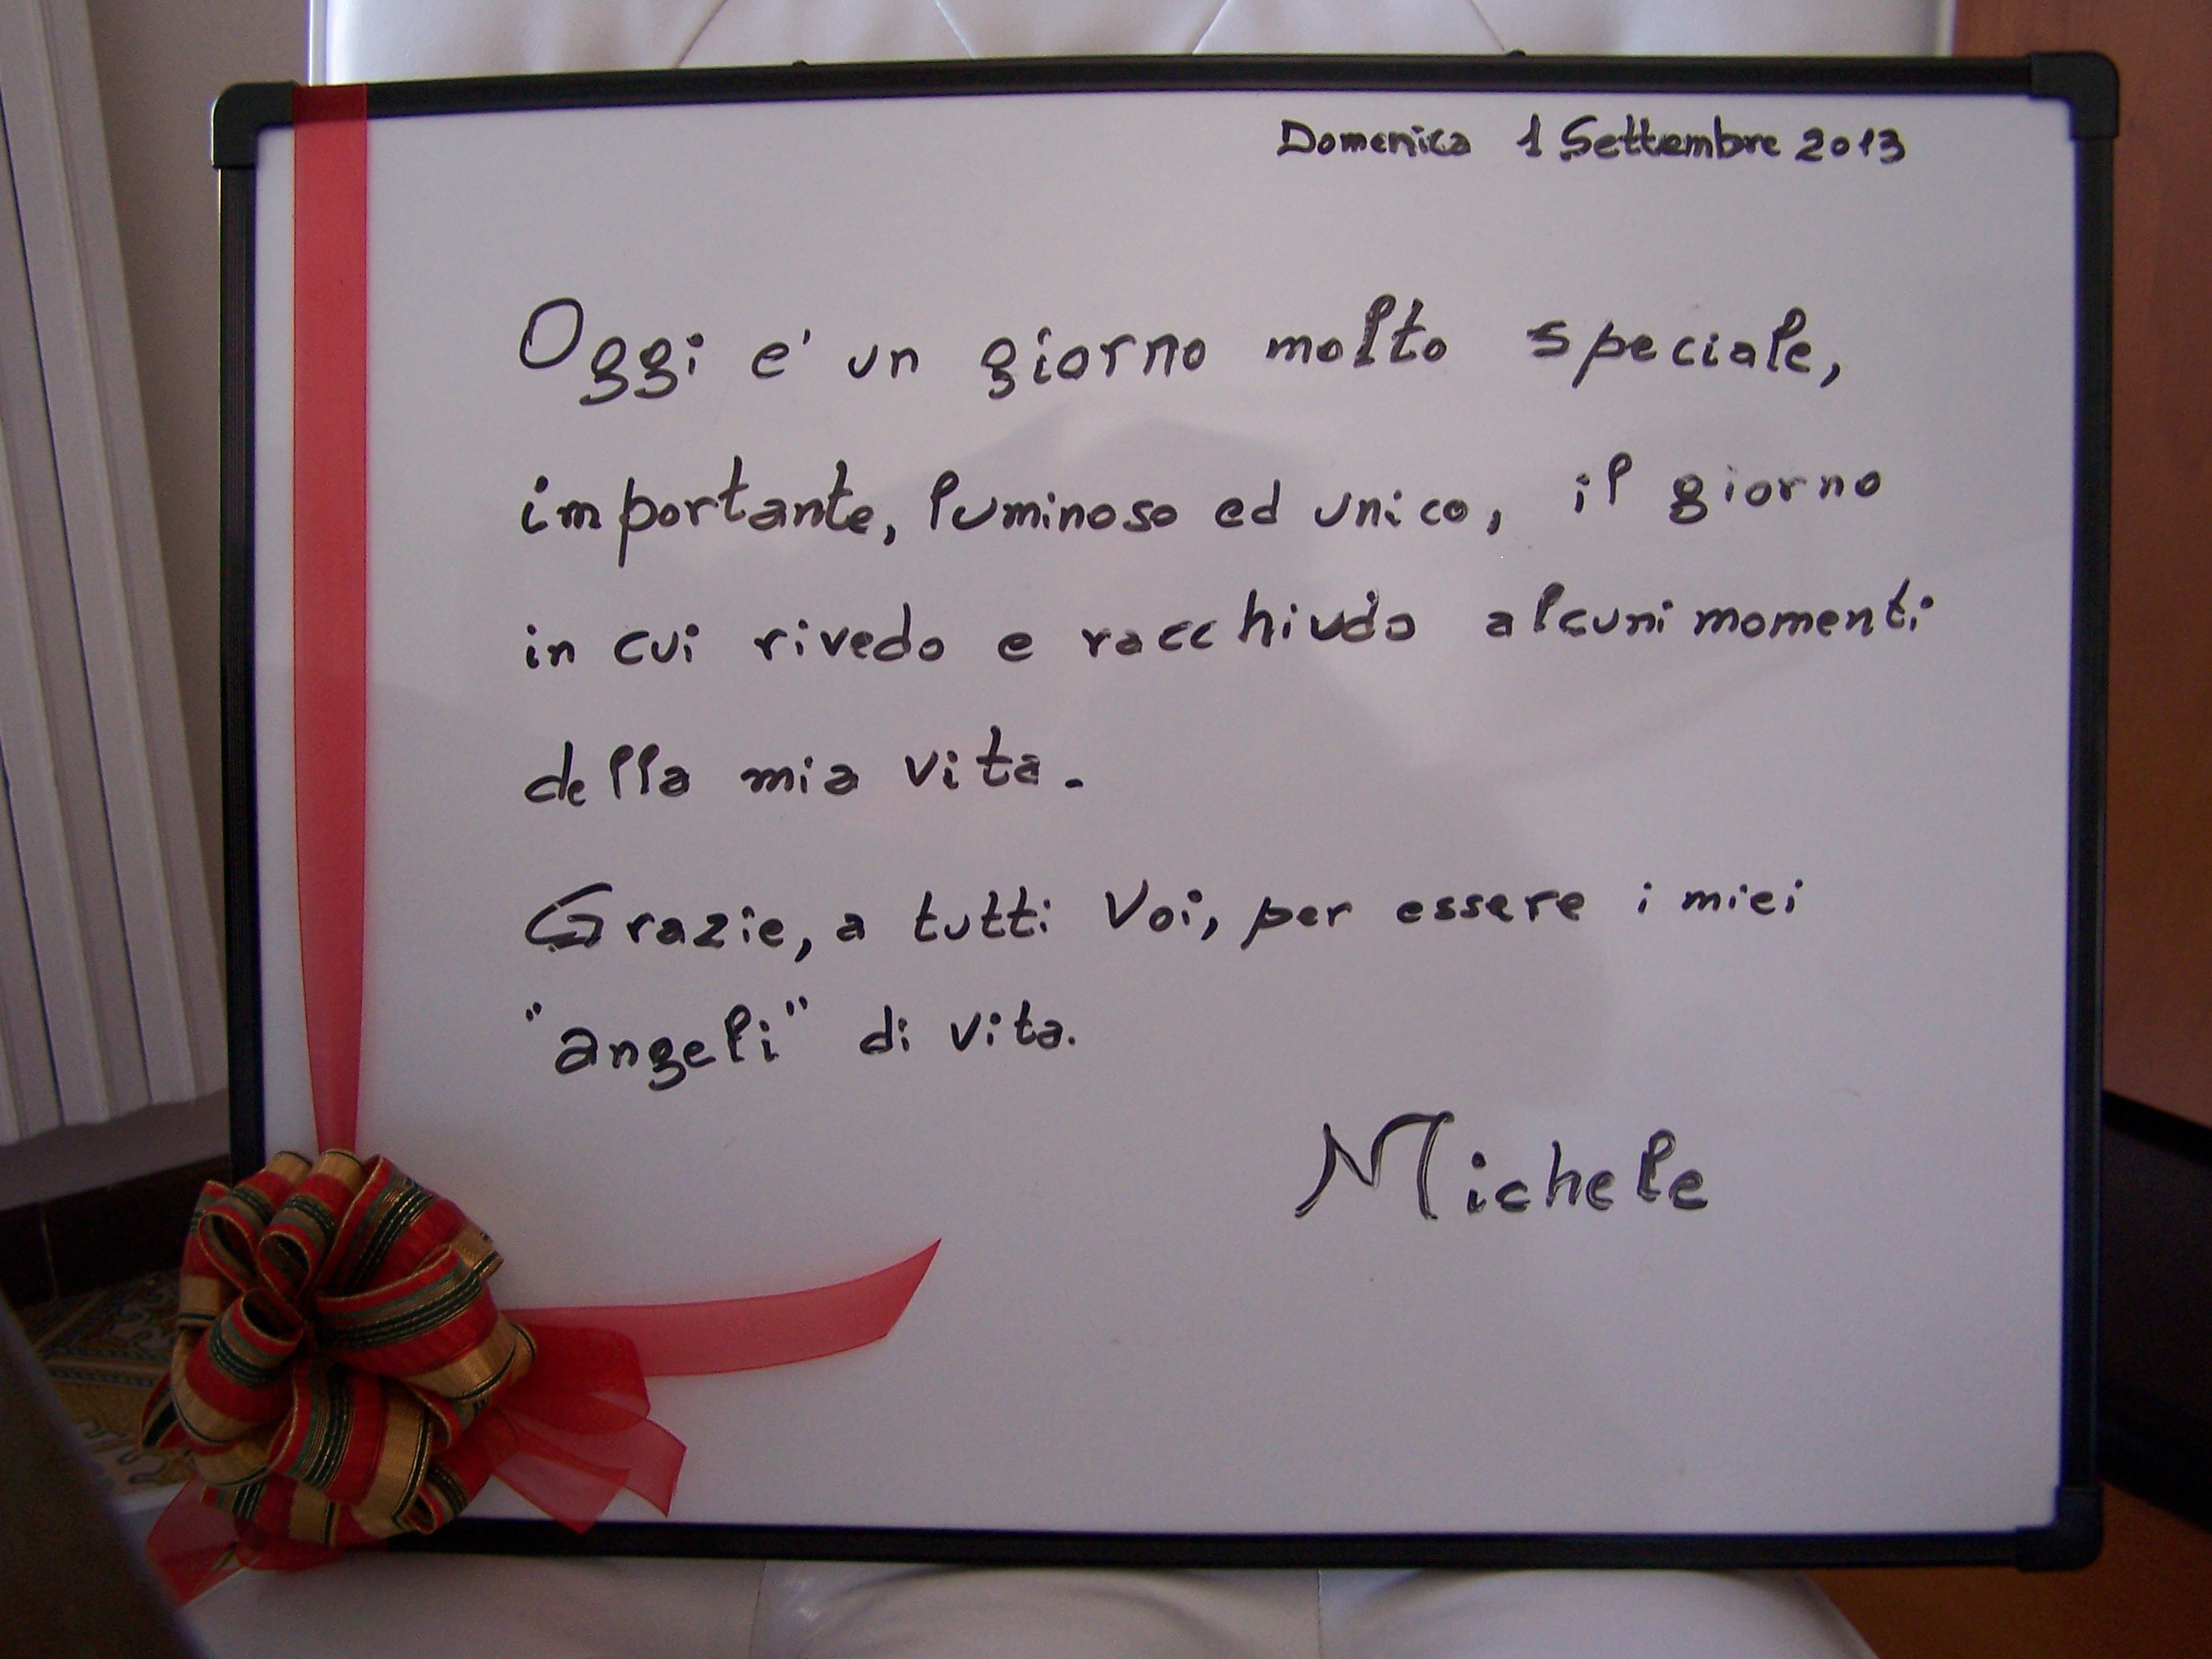 Domenica 1 Settembre 2013
Oggi e' un giorno molto speciale,
importante, luminoso ed unico, il giorno
in cui rivedo e racchiudo alcuni momenti
della mia vita.
Grazie, a tutti Voi, per essere i miei
"angeli" di vita.
Michele